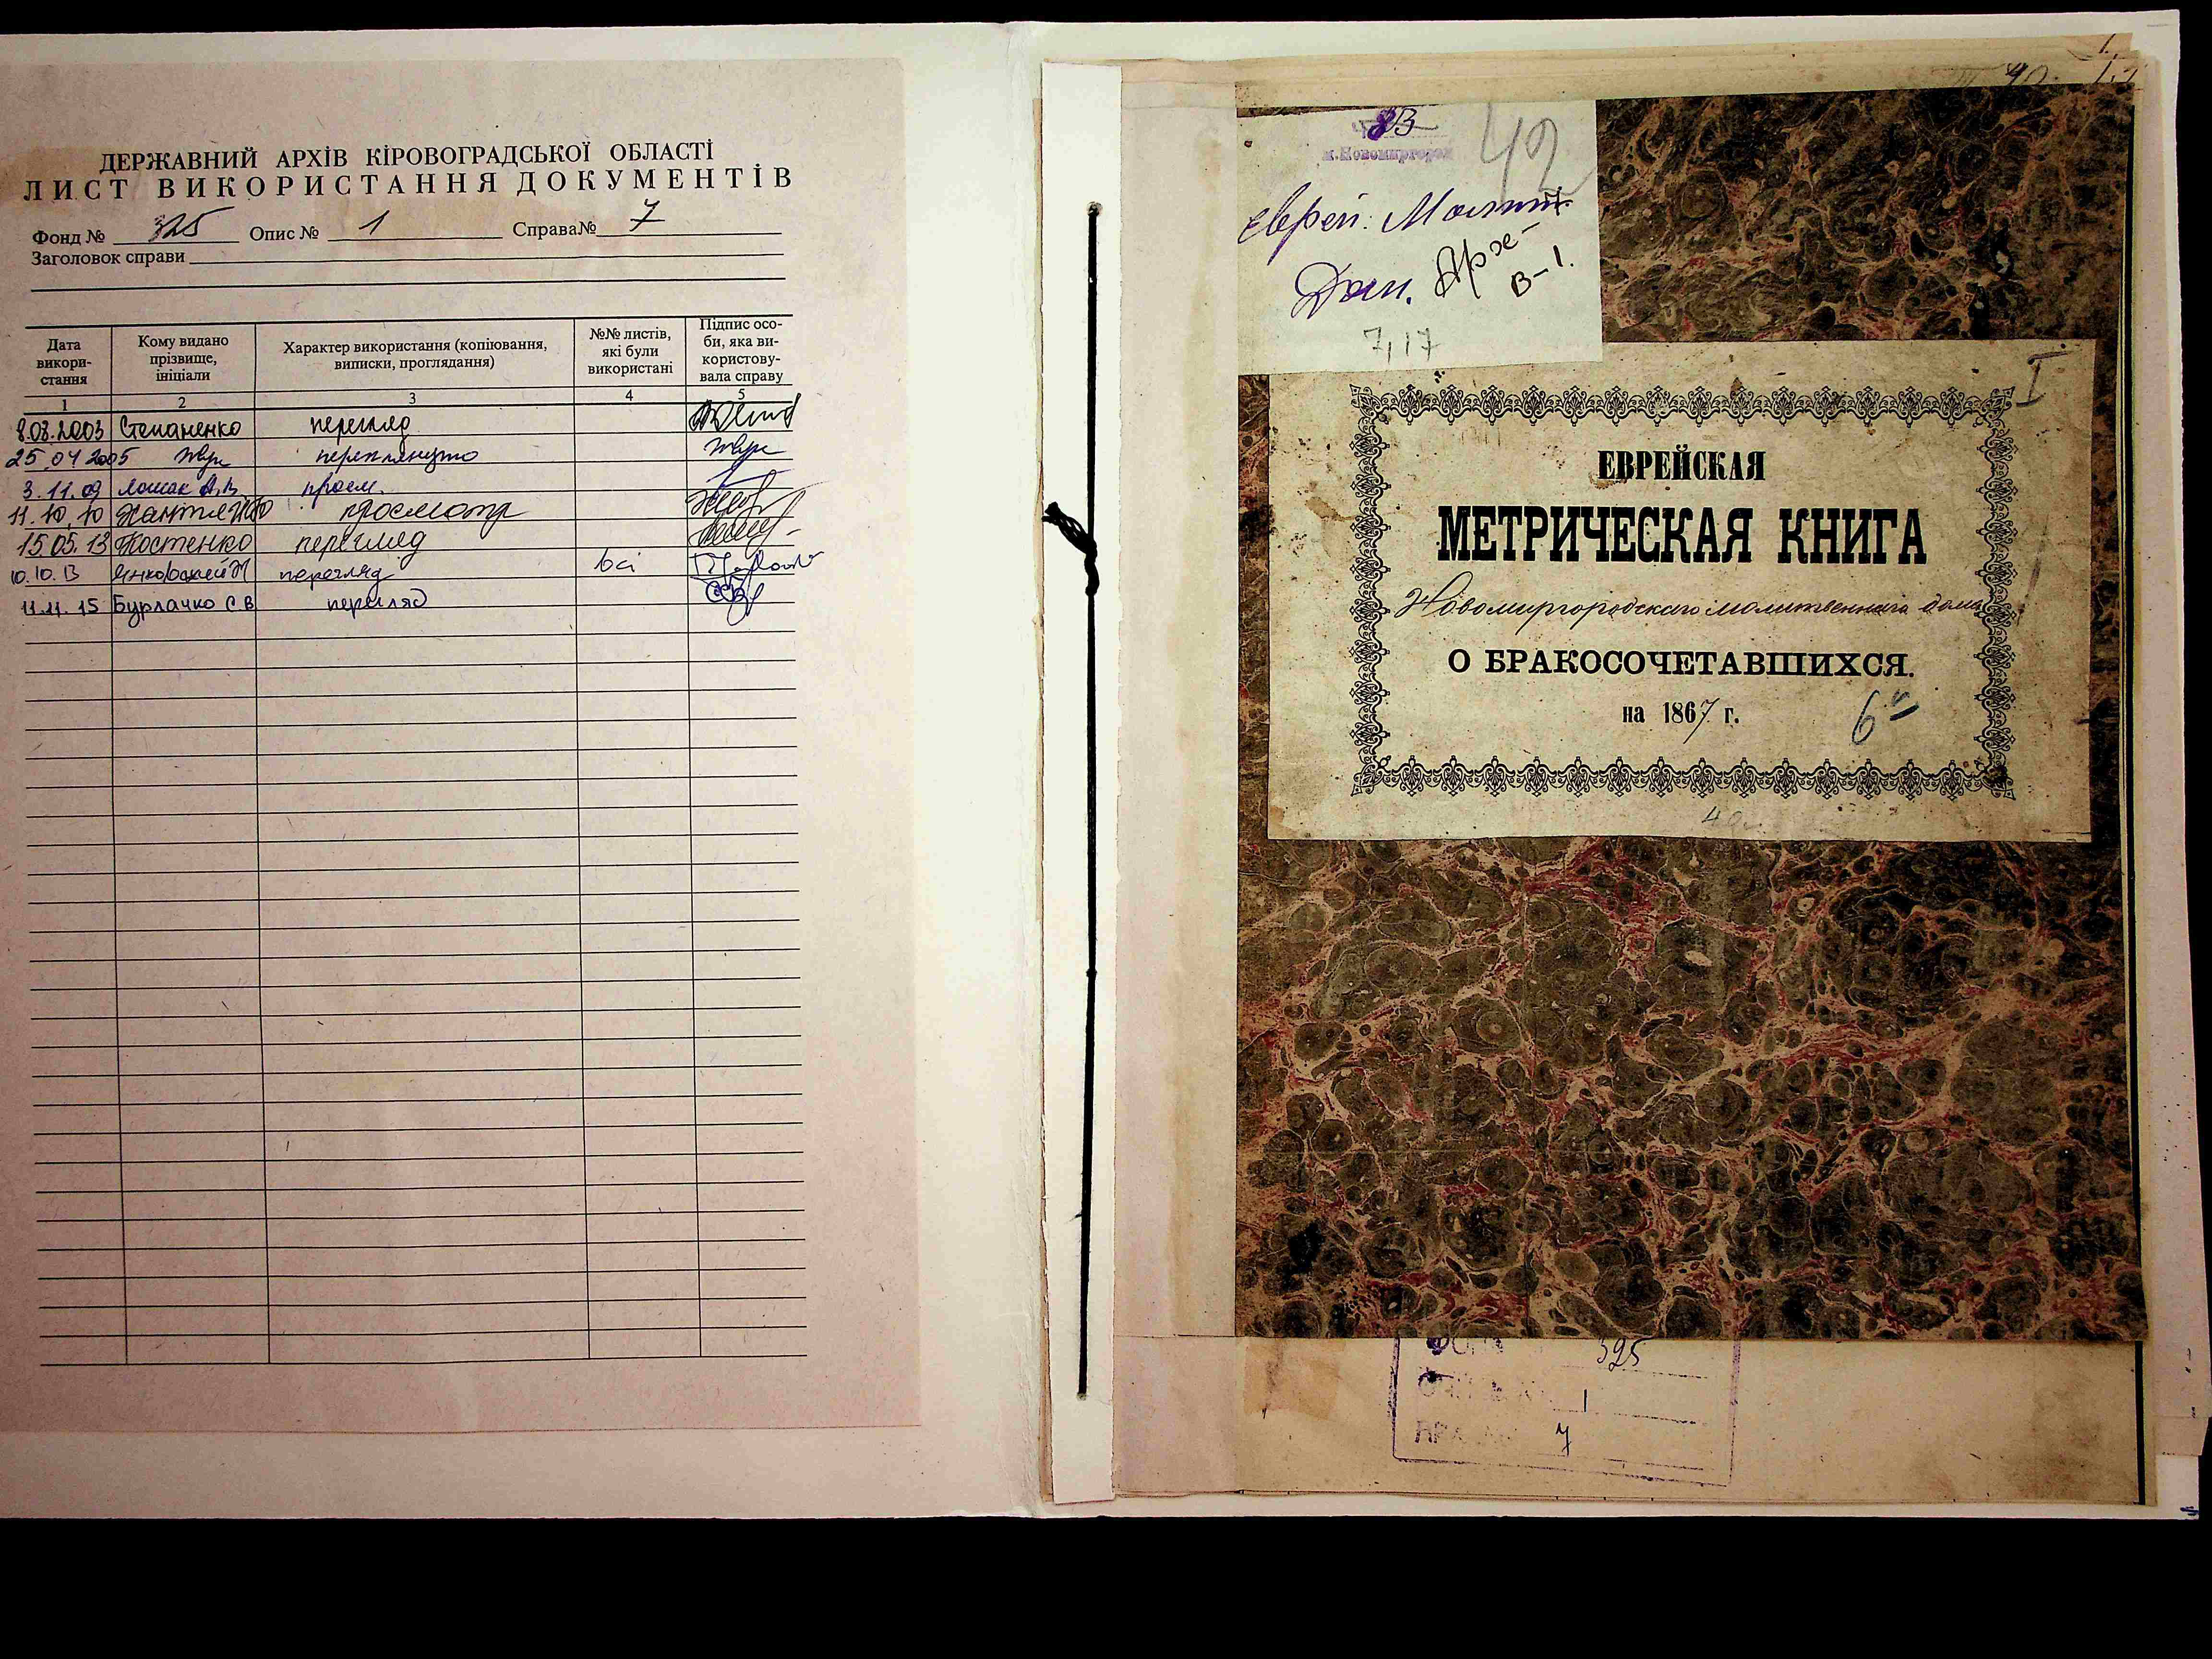 ДЕРЖАВНИЙ АРХІВ КІРОВОГРАДСЬКОЇ ОБЛАСТІ
ЛИСТ ВИКОРИСТАННЯ ДОКУМЕНТІВ
Фонд № 325 Опис № 1 Справа№ 7
Заголовок справи
Дата використання
Кому видано прізвище, ініціали
Характер використання (копіювання, виписки, проглядання)
№№ листів, які були використані
Підпис особи, яка використовувала справу
1 2 3 4 5
8.08.2003 Степаненко перегляд
25.04 2005 переглянуто
3.11.09
11.10.10 просмотр
15.05.13 Костенко перегляд
10.10.13 перегляд всі
11.11.15 Бурлачко С В перегляд
м.Новомиргород
42
Еврей. Молит.
Дом.
В-1.
7,17
I
ЕВРЕЙСКАЯ
МЕТРИЧЕСКАЯ КНИГА
Новомиргородскаго молитвеннаго дома
О БРАКОСОЧЕТАВШИХСЯ.
на 1867 г.
325
1
7